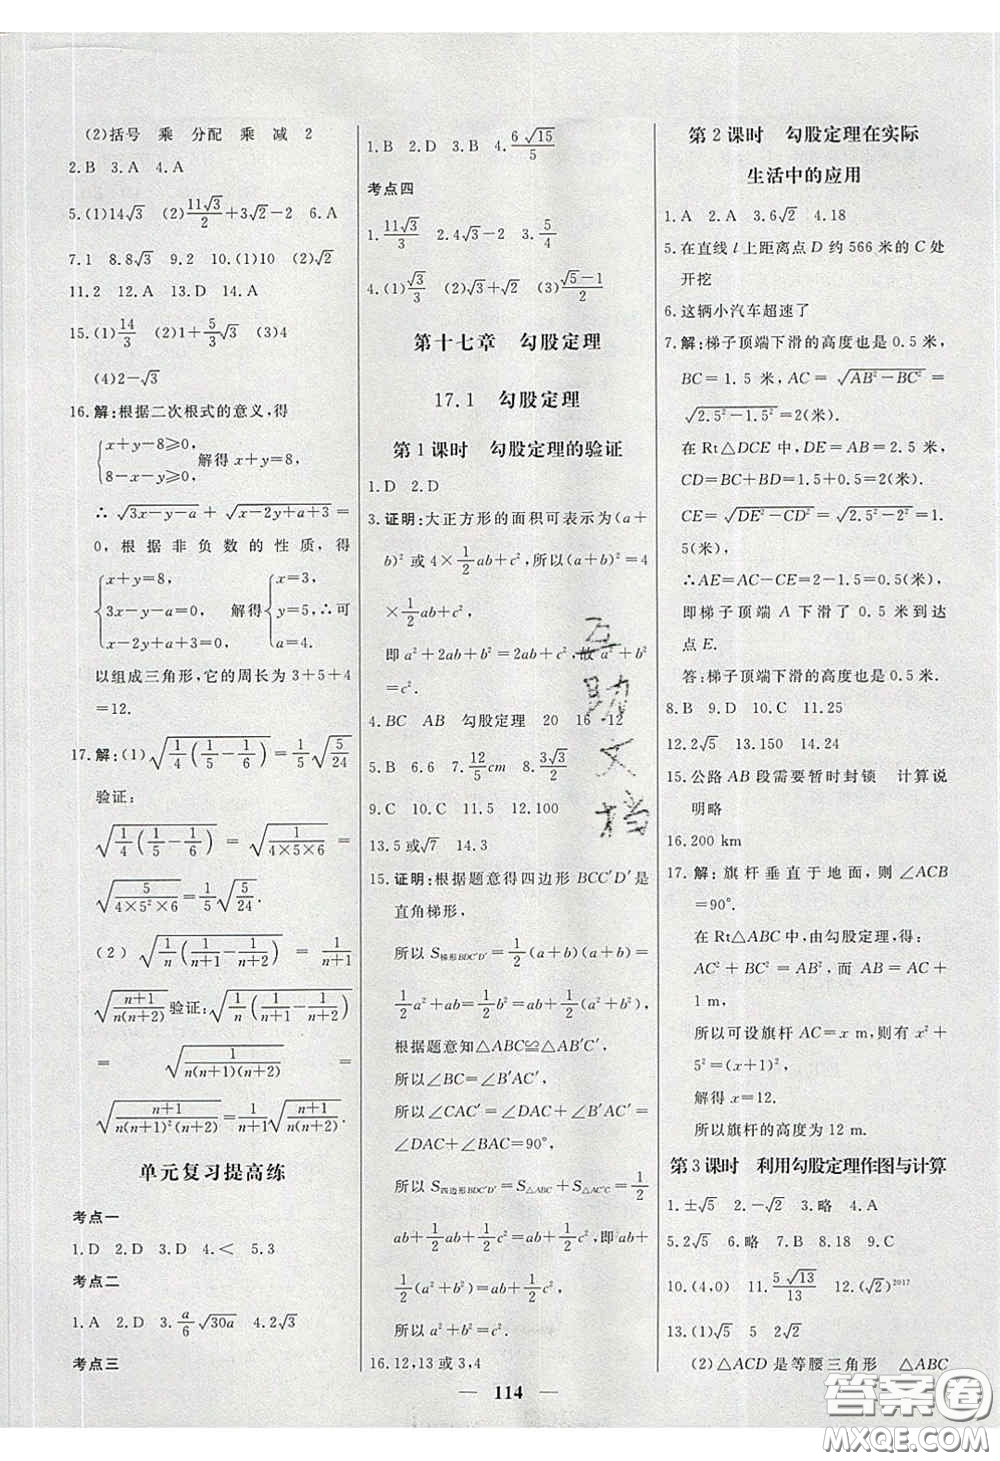 (2)括号 乘 分配 乘 减 2
2.B 3.A 4.A
5.(1)14√3 (2)11√3/2+3√2-2 6.A
7.1 8.8√3 9.2 10.(1)10 (2)√2
11.2 12.A 13.D 14.A
15.(1)14/3 (2)1+5/3√3 (3)4
(4)2-√3
16.解:根据二次根式的意义,得
{x+y-8≥0, 8-x-y≥0, 解得x+y=8,
∴√(3x-y-a)+√(x-2y+a+3)=
0,根据非负数的性质,得
{x+y=8, 3x-y-a=0, x-2y+a+3=0, 解得{x=3, y=5, a=4. ∴可
以组成三角形,它的周长为3+5+4
=12.
17.解:(1)√(1/4(1/5-1/6))=1/5√(5/24)
验证:
√(1/4(1/5-1/6))=√(1/(4×5×6))=
√(5/(4×5²×6))=1/5√(5/24).
(2)√(1/n(1/(n+1)-1/(n+2)))=1/(n+1)
√((n+1)/(n(n+2)))验证:√(1/n(1/(n+1)-1/(n+2)))
=√(1/(n(n+1)(n+2)))=
√((n+1)/(n(n+1)²(n+2)))=1/(n+1)√((n+1)/(n(n+2))).
单元复习提高练
考点一
1.D 2.D 3.D 4.< 5.3
考点二
1.A 2.D 3.a/6√30a 4.2√3
考点三
1.B 2.D 3.B 4.6√15/5
考点四
1.11√3/3 2.4√3-2 3.5/4
4.(1)√3/3 (2)√3+√2 (3)(√5-1)/2
第十七章 勾股定理
17.1 勾股定理
第1课时 勾股定理的验证
1.D 2.D
3.证明:大正方形的面积可表示为(a+
b)²或4×1/2ab+c²,所以(a+b)²=4
×1/2ab+c²,
即a²+2ab+b²=2ab+c²,故a²+b²
=c².
4.BC AB 勾股定理 20 16 12
5.B 6.6 7.12/5cm 8.3√3/2
9.C 10.C 11.5 12.100
13.5或√7 14.3
15.证明:根据题意得四边形BCC′D′是
直角梯形,
所以S梯形BDC′D′=1/2(a+b)(a+b)=
1/2a²+ab=1/2+ab+1/2b²,
根据题意知△ABC≌△AB′C′,
所以∠BC=∠B′AC′,
所以∠CAC′=∠DAC+∠B′AC′=
∠DAC+∠BAC=90°,
所以S四边形BDC′D′=S△ABC+S△AC′C=1/2
ab+1/2ab+1/2c²=ab+1/2c²,即1/2a²+
ab+1/2(a²+b²)=ab+1/2c²,
所以1/2(a²+b²)=1/2c²,
所以a²+b²=c².
16.12,13或3,4
第2课时 勾股定理在实际
生活中的应用
1.A 2.A 3.6√2 4.18
5.在直线l上距离点D约566米的C处
开挖
6.这辆小汽车超速了
7.解:梯子顶端下滑的高度也是0.5米,
BC=1.5米,AC=√(AB²-BC²)=
√(2.5²-1.5²)=2(米),
在Rt△DCE中,DE=AB=2.5(米),
CD=BC+BD=1.5+0.5=2(米),
CE=√(DE²-CD²)=√(2.5²-2²)=1.
5(米),
∴AE=AC-CE=2-1.5=0.5(米),
即梯子顶端A下滑了0.5米到达
点E.
答:梯子顶端下滑的高度也是0.5米.
8.B 9.D 10.C 11.25
12.2√5 13.150 14.24
15.公路AB段需要暂时封锁 计算说
明略
16.200 km
17.解:旗杆垂直于地面,则∠ACB
=90°.
在Rt△ABC中,由勾股定理,得:
AC²+BC²=AB²,而AB=AC+
1 m,
所以可设旗杆AC=x m,则有x²+
5²=(x+1)²,
解得x=12.
所以旗杆的高度为12 m.
第3课时 利用勾股定理作图与计算
1.±√5 2.-√2 3.略 4.A
5.2√5 6.略 7.B 8.B 9.C
10.(4,0) 11.5√13/13 12.(√2)²⁰¹⁷
13.(1)√5 5 2√2
(2)△ACD是等腰三角形 △ABC
— 114 —
互助文档
答案圈
MXQE.COM